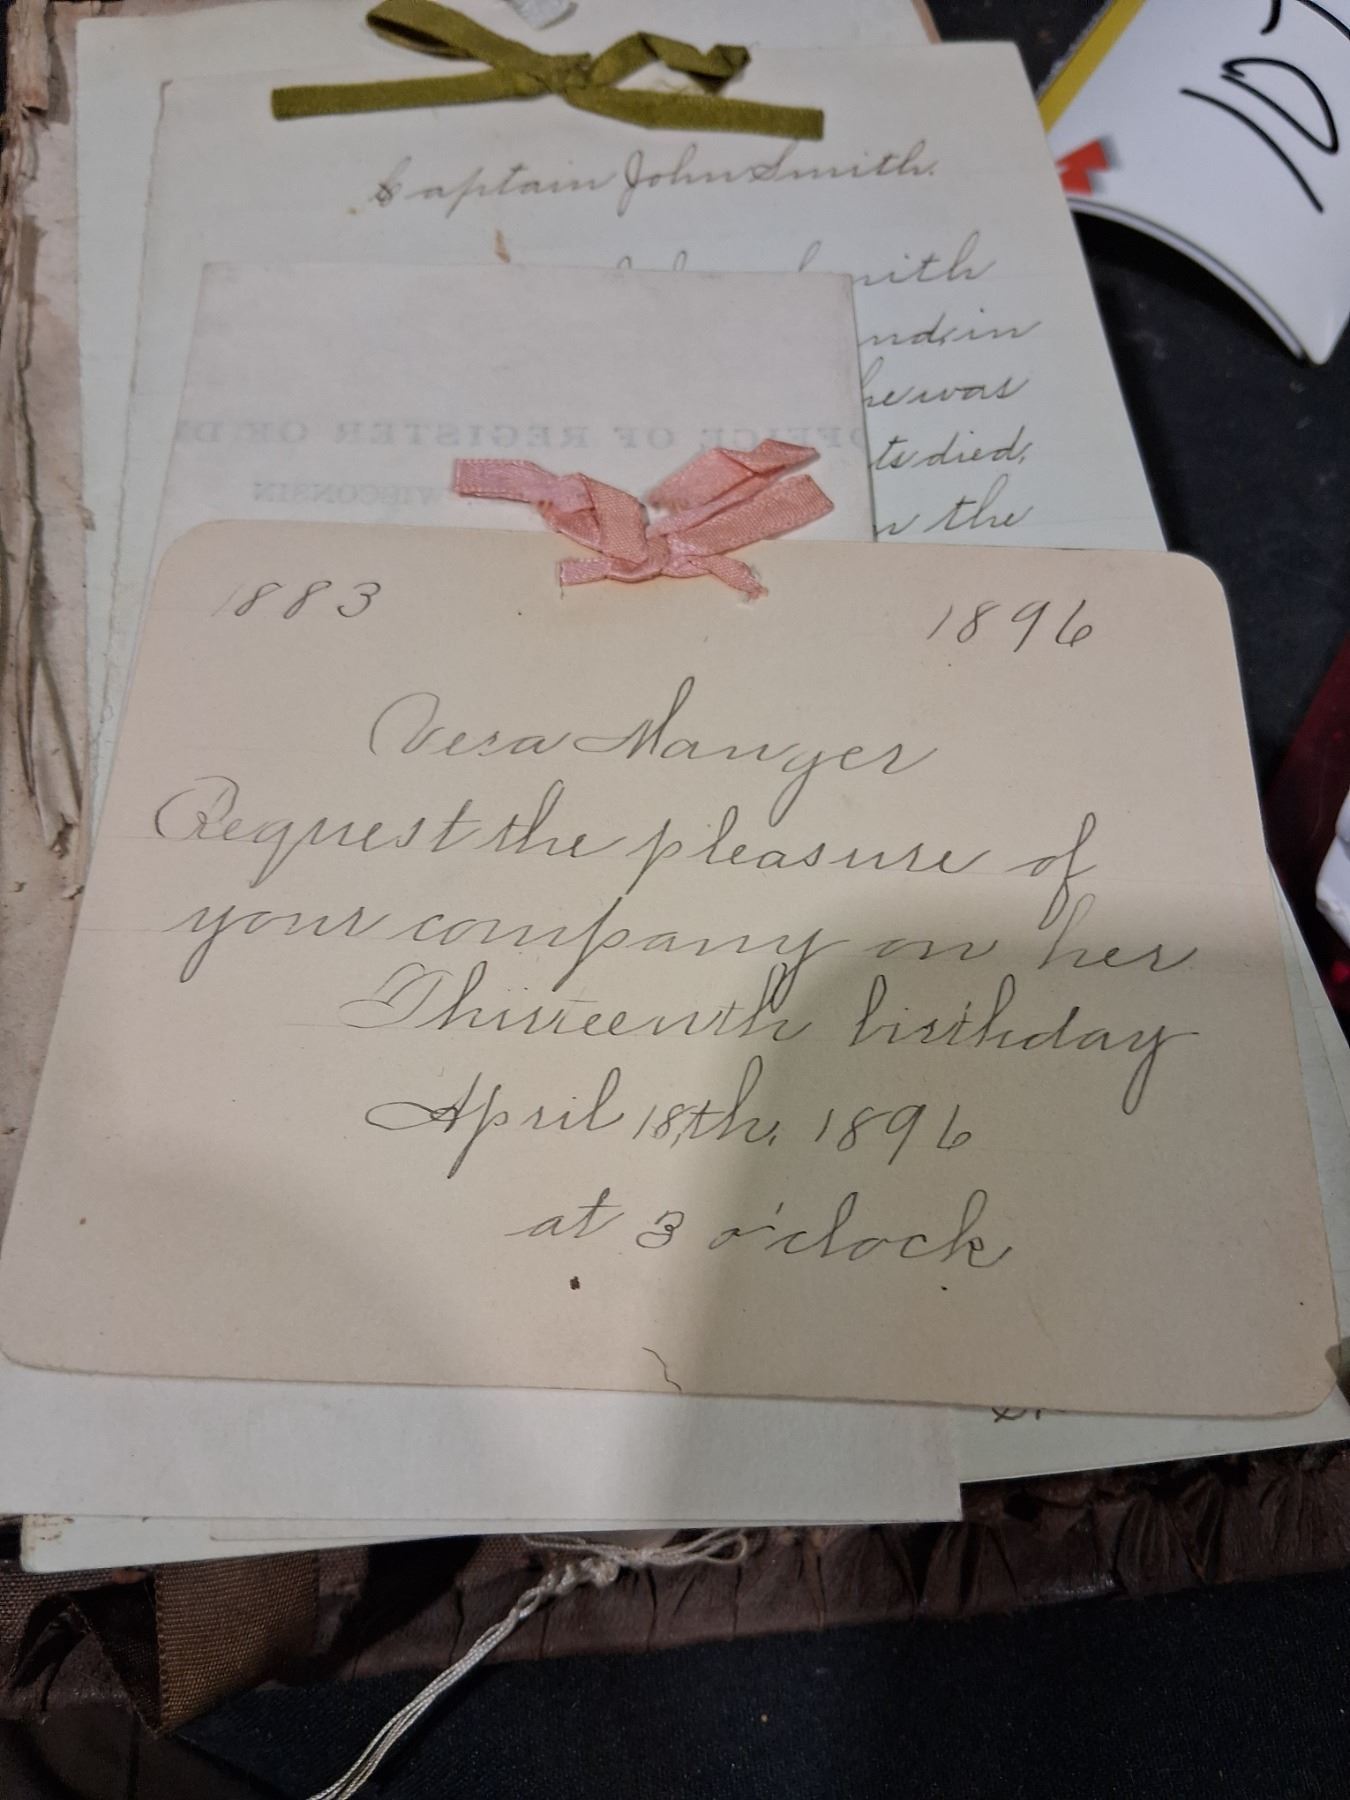 Captain John Smith.
nith
nd, in
he was
ts died,
n the
OFFICE OF REGISTER OF D
WISCONSIN
1883 1896
Vera Manger
Request the pleasure of
your company on her
Thirteenth birthday
April 18,th, 1896
at 3 o'clock